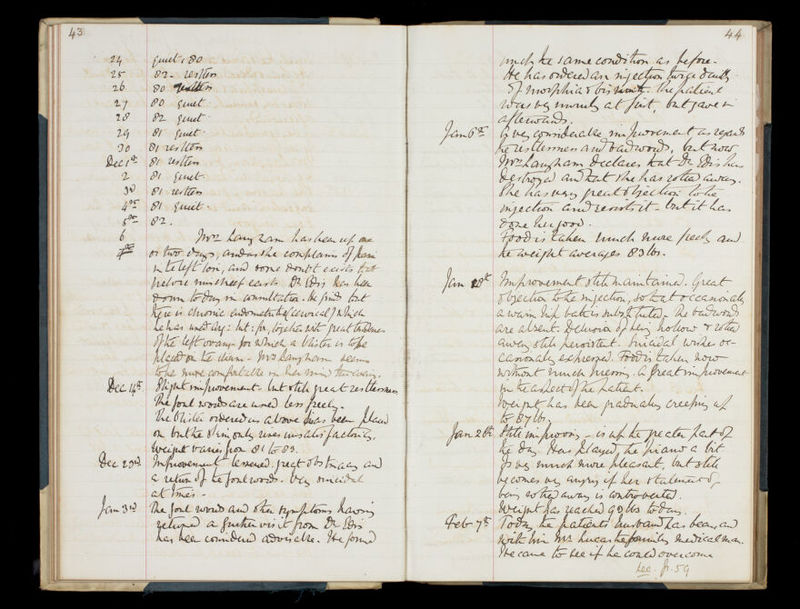 43
24 quiet 80
25 82. restless
26 80 restless
27 80 quiet
28 82 quiet
29 81 quiet
30 81 restless
Dec 1st 81 restless
2 81 quiet
3rd 81 restless
4th 81 quiet
5th 82.
6 Mrs Langham has been up one
or two days, and as she complains of pain
in the left loin, and some doubt exists
Dr Edis has been
down to day in consultation. He finds that
there is chronic endometritis (cervical) which
great tenderness
of the left ovary for which a blister is to be
placed on the . Mrs Langham seems
to be more comfortable in her mind
Dec 14th Slight improvement. but still great restlessness
The foul words are used less freely.
The blister ordered as above has been placed
on but the skin only rises unsatisfactorily.
Weight varies from 81 to 83.
Dec 23rd Improvement lessened. great obstinacy and
a return of the foul words. Very suicidal
at times.
Jan 3rd The foul words and other symptoms having
returned a further visit from Dr Edis
has been considered advisable. He found
44
much the same condition as before.
He has ordered an injection twice daily
of morphia & bismuth. The patient
was very unruly at first, but gave in
afterwards.
Jan 6th A very considerable improvement as regards
the restlessness and bad words, but now
Mrs Langham declares that Dr Edis has
destroyed and that she has rotted away.
She has very great objection to the
injection and resists it. but it has
done her good.
Food is taken much more freely and
the weight averages 83 lbs.
Jan 18th Improvement still maintained. Great
objection to the injection, so that occasionally
a warm hip bath is substituted. The bad words
are absent. Delusion of being hollow & rotted
away still persistent. Suicidal wishes oc-
casionally expressed. Food is taken now
without much pressing. A great improvement
in the aspect of the patient.
Weight has been gradually creeping up
to 87 lbs.
Jan 26th Still improving, is up the greater part of
the day. Has played the piano a bit
is very much more pleasant, but still
becomes very angry if her statement of
being rotted away is controverted.
Weight has reached 90 lbs to day.
Feb 7th Today the patient's husband has been, and
with him Mr Lucas the family medical man.
He came to see if he could overcome
See p. 59